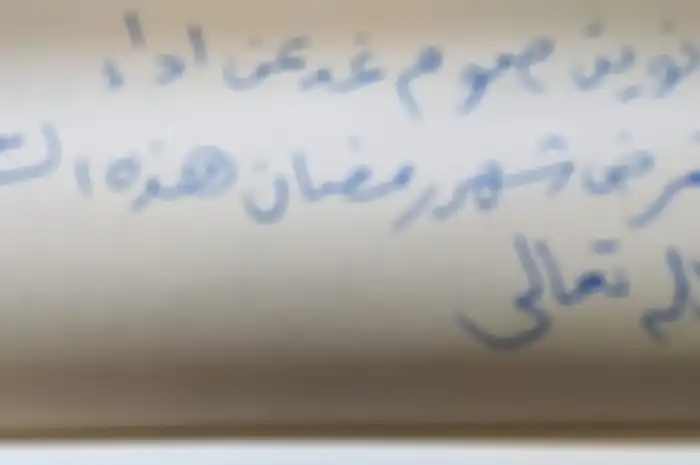 نويت صوم غد عن اداء
فرض شهر رمضان هذه
لله تعالى